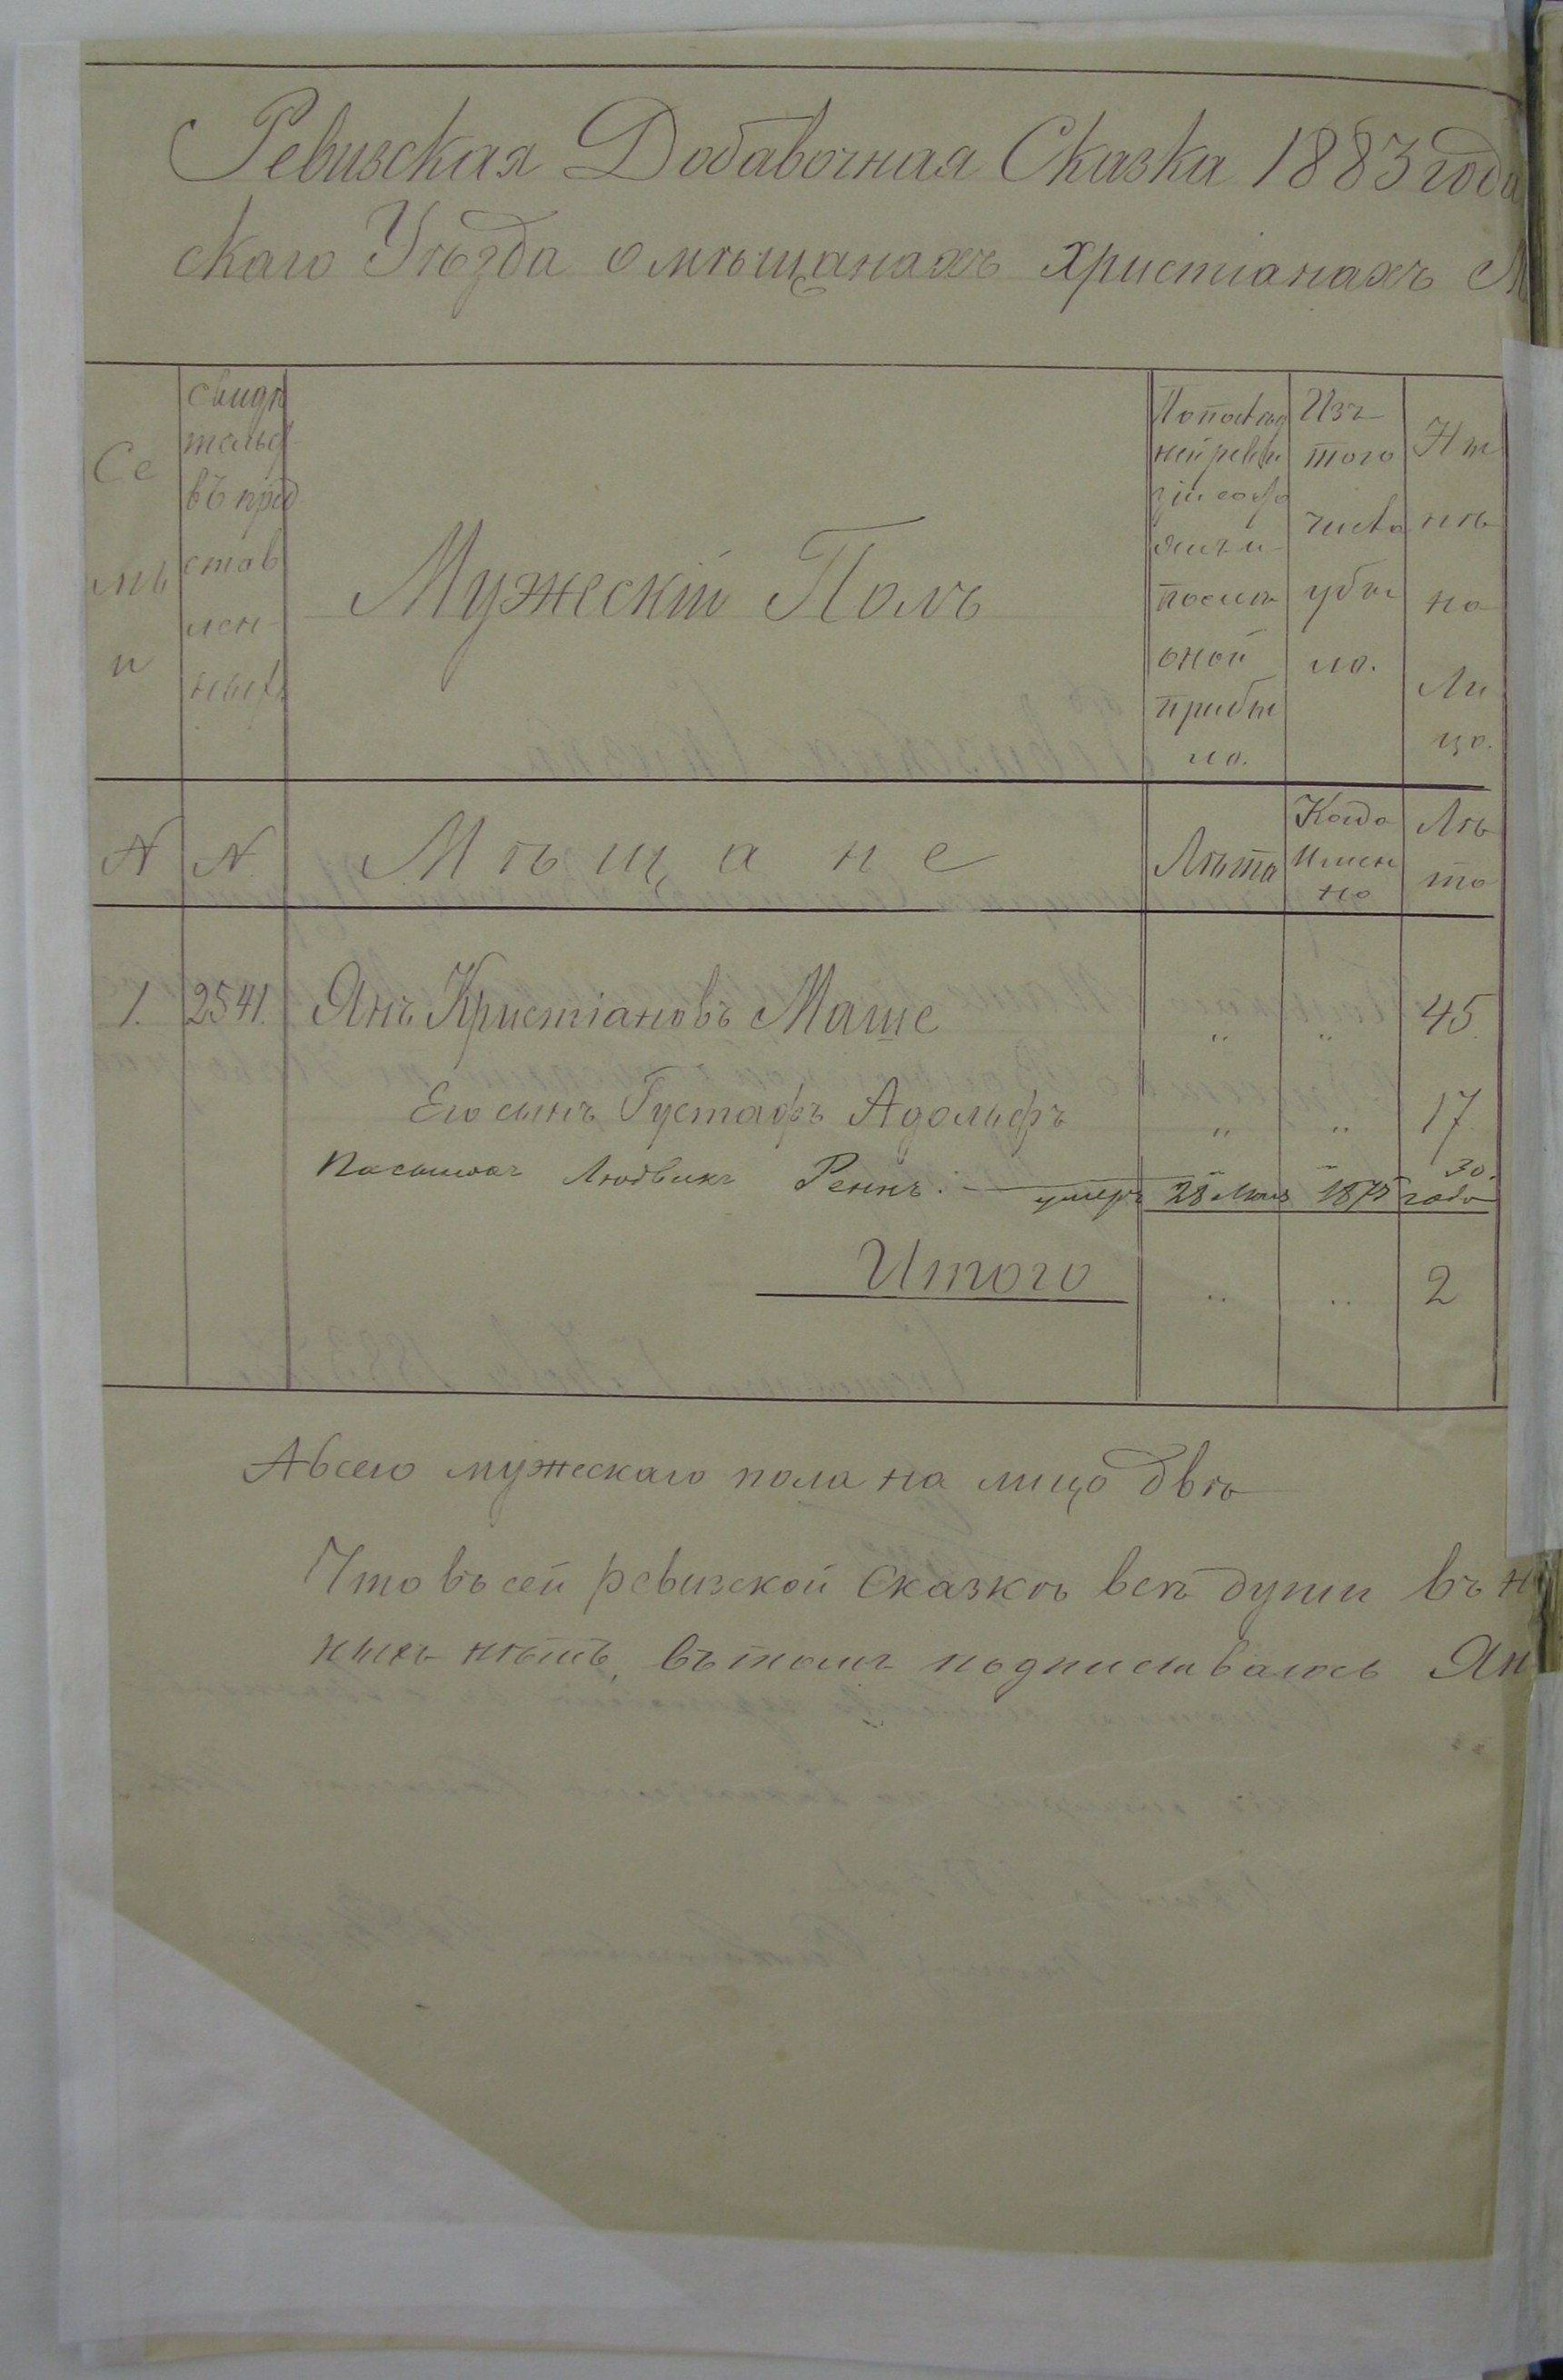 Ревизская Добавочная Сказка 1883 года
скаго Уѣзда о мѣщанахъ христіанахъ М
Се
мь
и
свидѣ
тельс
въ пред
став
лен
ныхъ
Мужескій Полъ
По послѣд
ней реви
зіи состо
яло и
послѣ
оной
прибы
ло.
Изъ
того
числа
убы
ло.
Ны
нѣ
на
Ли
цо.
N
N
Мѣщане
Лѣта
Когда
Имен
но
Лѣ
та
1.
2541.
Янъ Кристіановъ Маше
„
„
45.
Его сынъ Густафъ Адольфъ
„
„
17.
Пасынокъ Людвикъ Реннъ. умеръ 28 1875 года
30.
Итого
„
„
2
А всего мужескаго пола на лицо двѣ
Что въ сей ревизской Сказкѣ всѣ души въ н
ныхъ нѣтъ, въ томъ подписываюсь Ян